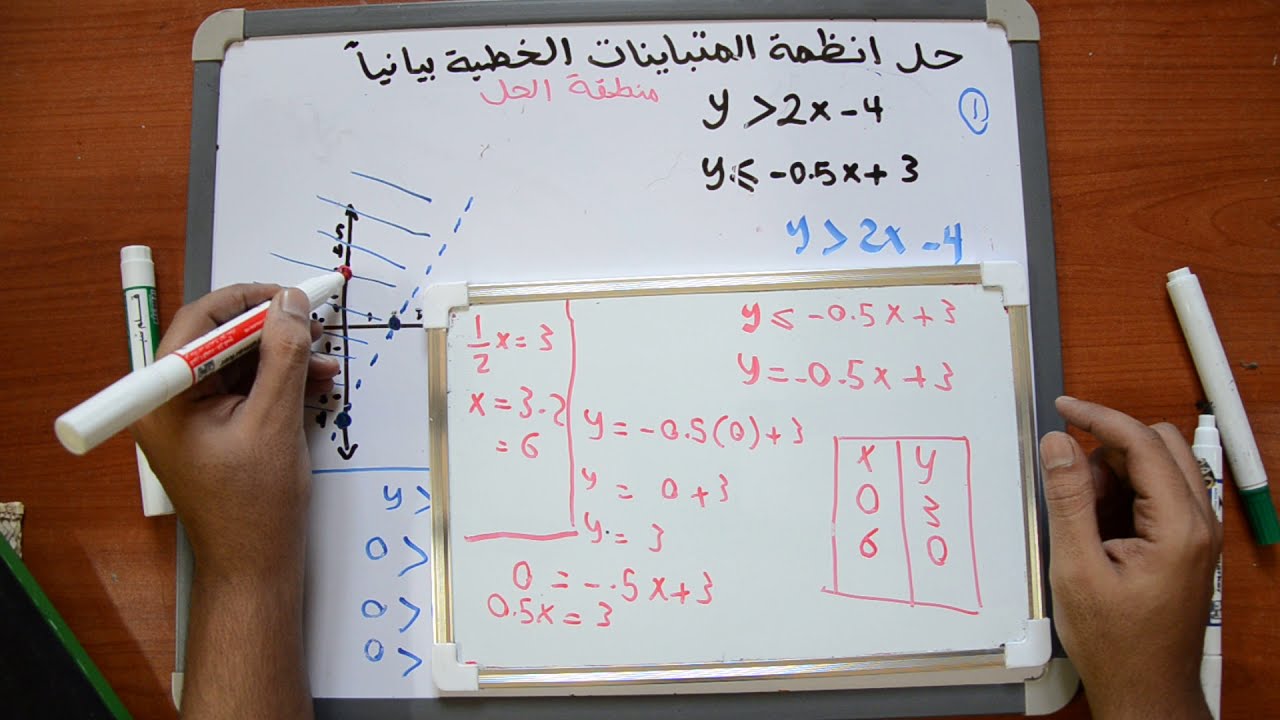 حل انظمة المتباينات الخطية بيانياً
منطقة الحل
①
y > 2x - 4
y ≤ -0.5x + 3
y > 2x - 4
y ≤ -0.5x + 3
y = -0.5x + 3
1/2 x = 3
x = 3.2
= 6
y = -0.5(0) + 3
y = 0 + 3
y = 3
0 = -.5x + 3
0.5x = 3
x y
0 3
6 0
y >
0 >
0 >
0 >